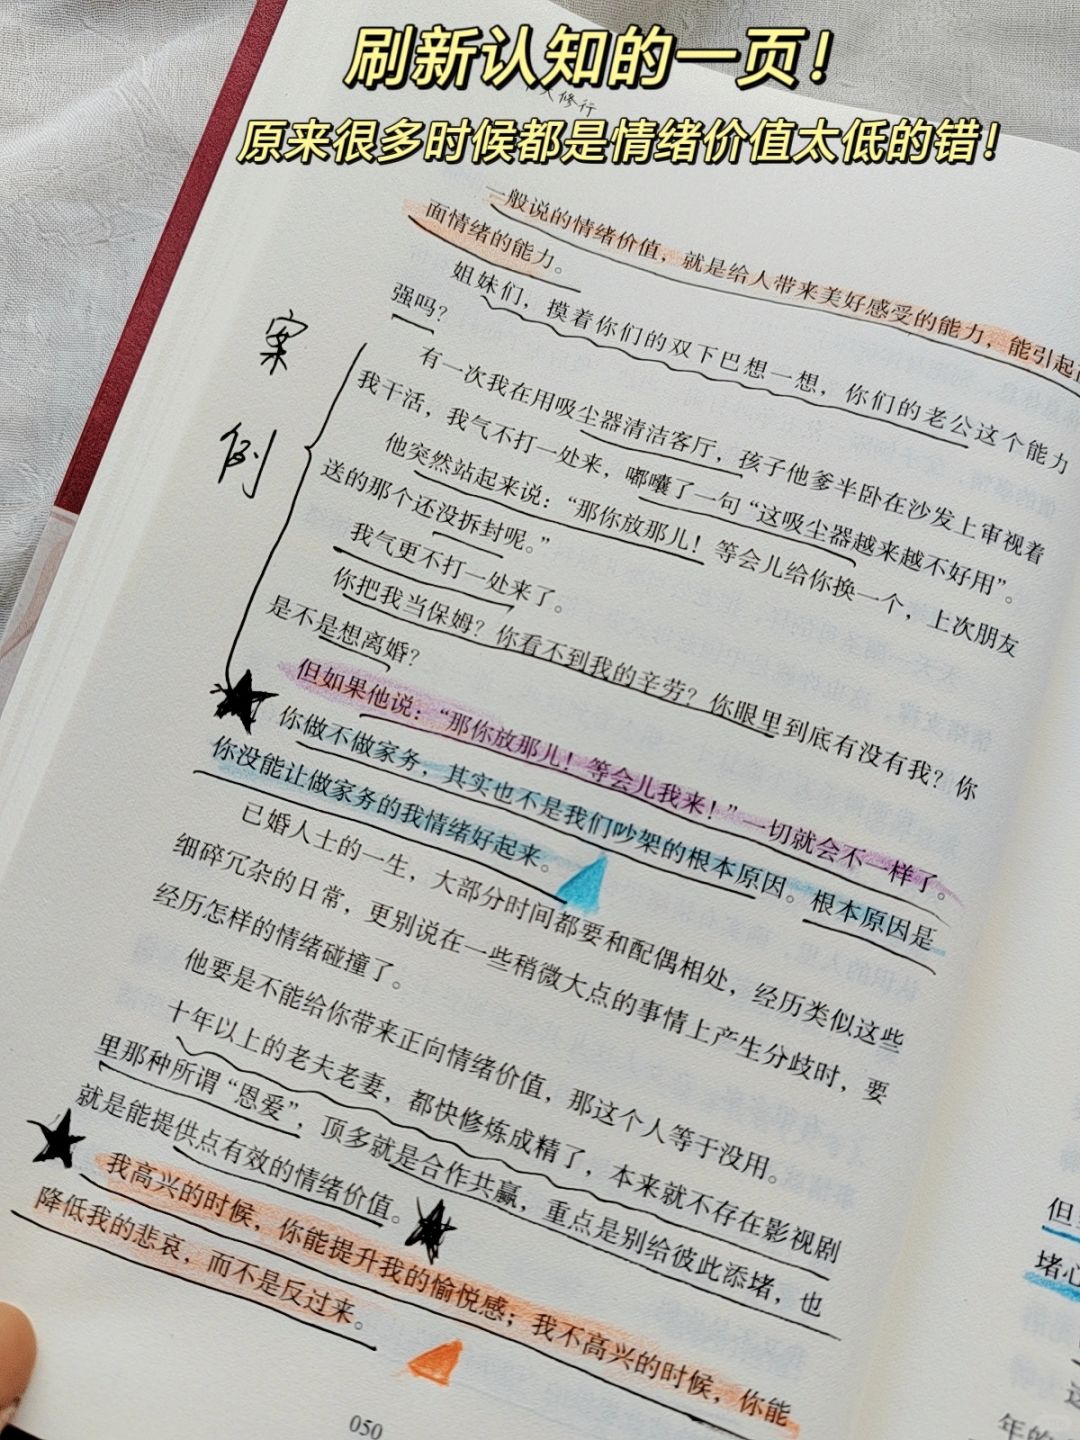 刷新认知的一页！
人修行
原来很多时候都是情绪价值太低的错！
一般说的情绪价值，就是给人带来美好感受的能力，能引起
面情绪的能力。
姐妹们，摸着你们的双下巴想一想，你们的老公这个能力
强吗？
案例
有一次我在用吸尘器清洁客厅，孩子他爹半卧在沙发上审视着
我干活，我气不打一处来，嘟囔了一句“这吸尘器越来越不好用”。
他突然站起来说：“那你放那儿！等会儿给你换一个，上次朋友
送的那个还没拆封呢。”
我气更不打一处来了。
你把我当保姆？你看不到我的辛劳？你眼里到底有没有我？你
是不是想离婚？
但如果他说：“那你放那儿！等会儿我来！”一切就会不一样了。
你做不做家务，其实也不是我们吵架的根本原因。根本原因是
你没能让做家务的我情绪好起来。
已婚人士的一生，大部分时间都要和配偶相处，经历类似这些
细碎冗杂的日常，更别说在一些稍微大点的事情上产生分歧时，要
经历怎样的情绪碰撞了。
他要是不能给你带来正向情绪价值，那这个人等于没用。
十年以上的老夫老妻，都快修炼成精了，本来就不存在影视剧
里那种所谓“恩爱”，顶多就是合作共赢，重点是别给彼此添堵，也
就是能提供点有效的情绪价值。
我高兴的时候，你能提升我的愉悦感；我不高兴的时候，你能
降低我的悲哀，而不是反过来。
050
但
堵心
年的